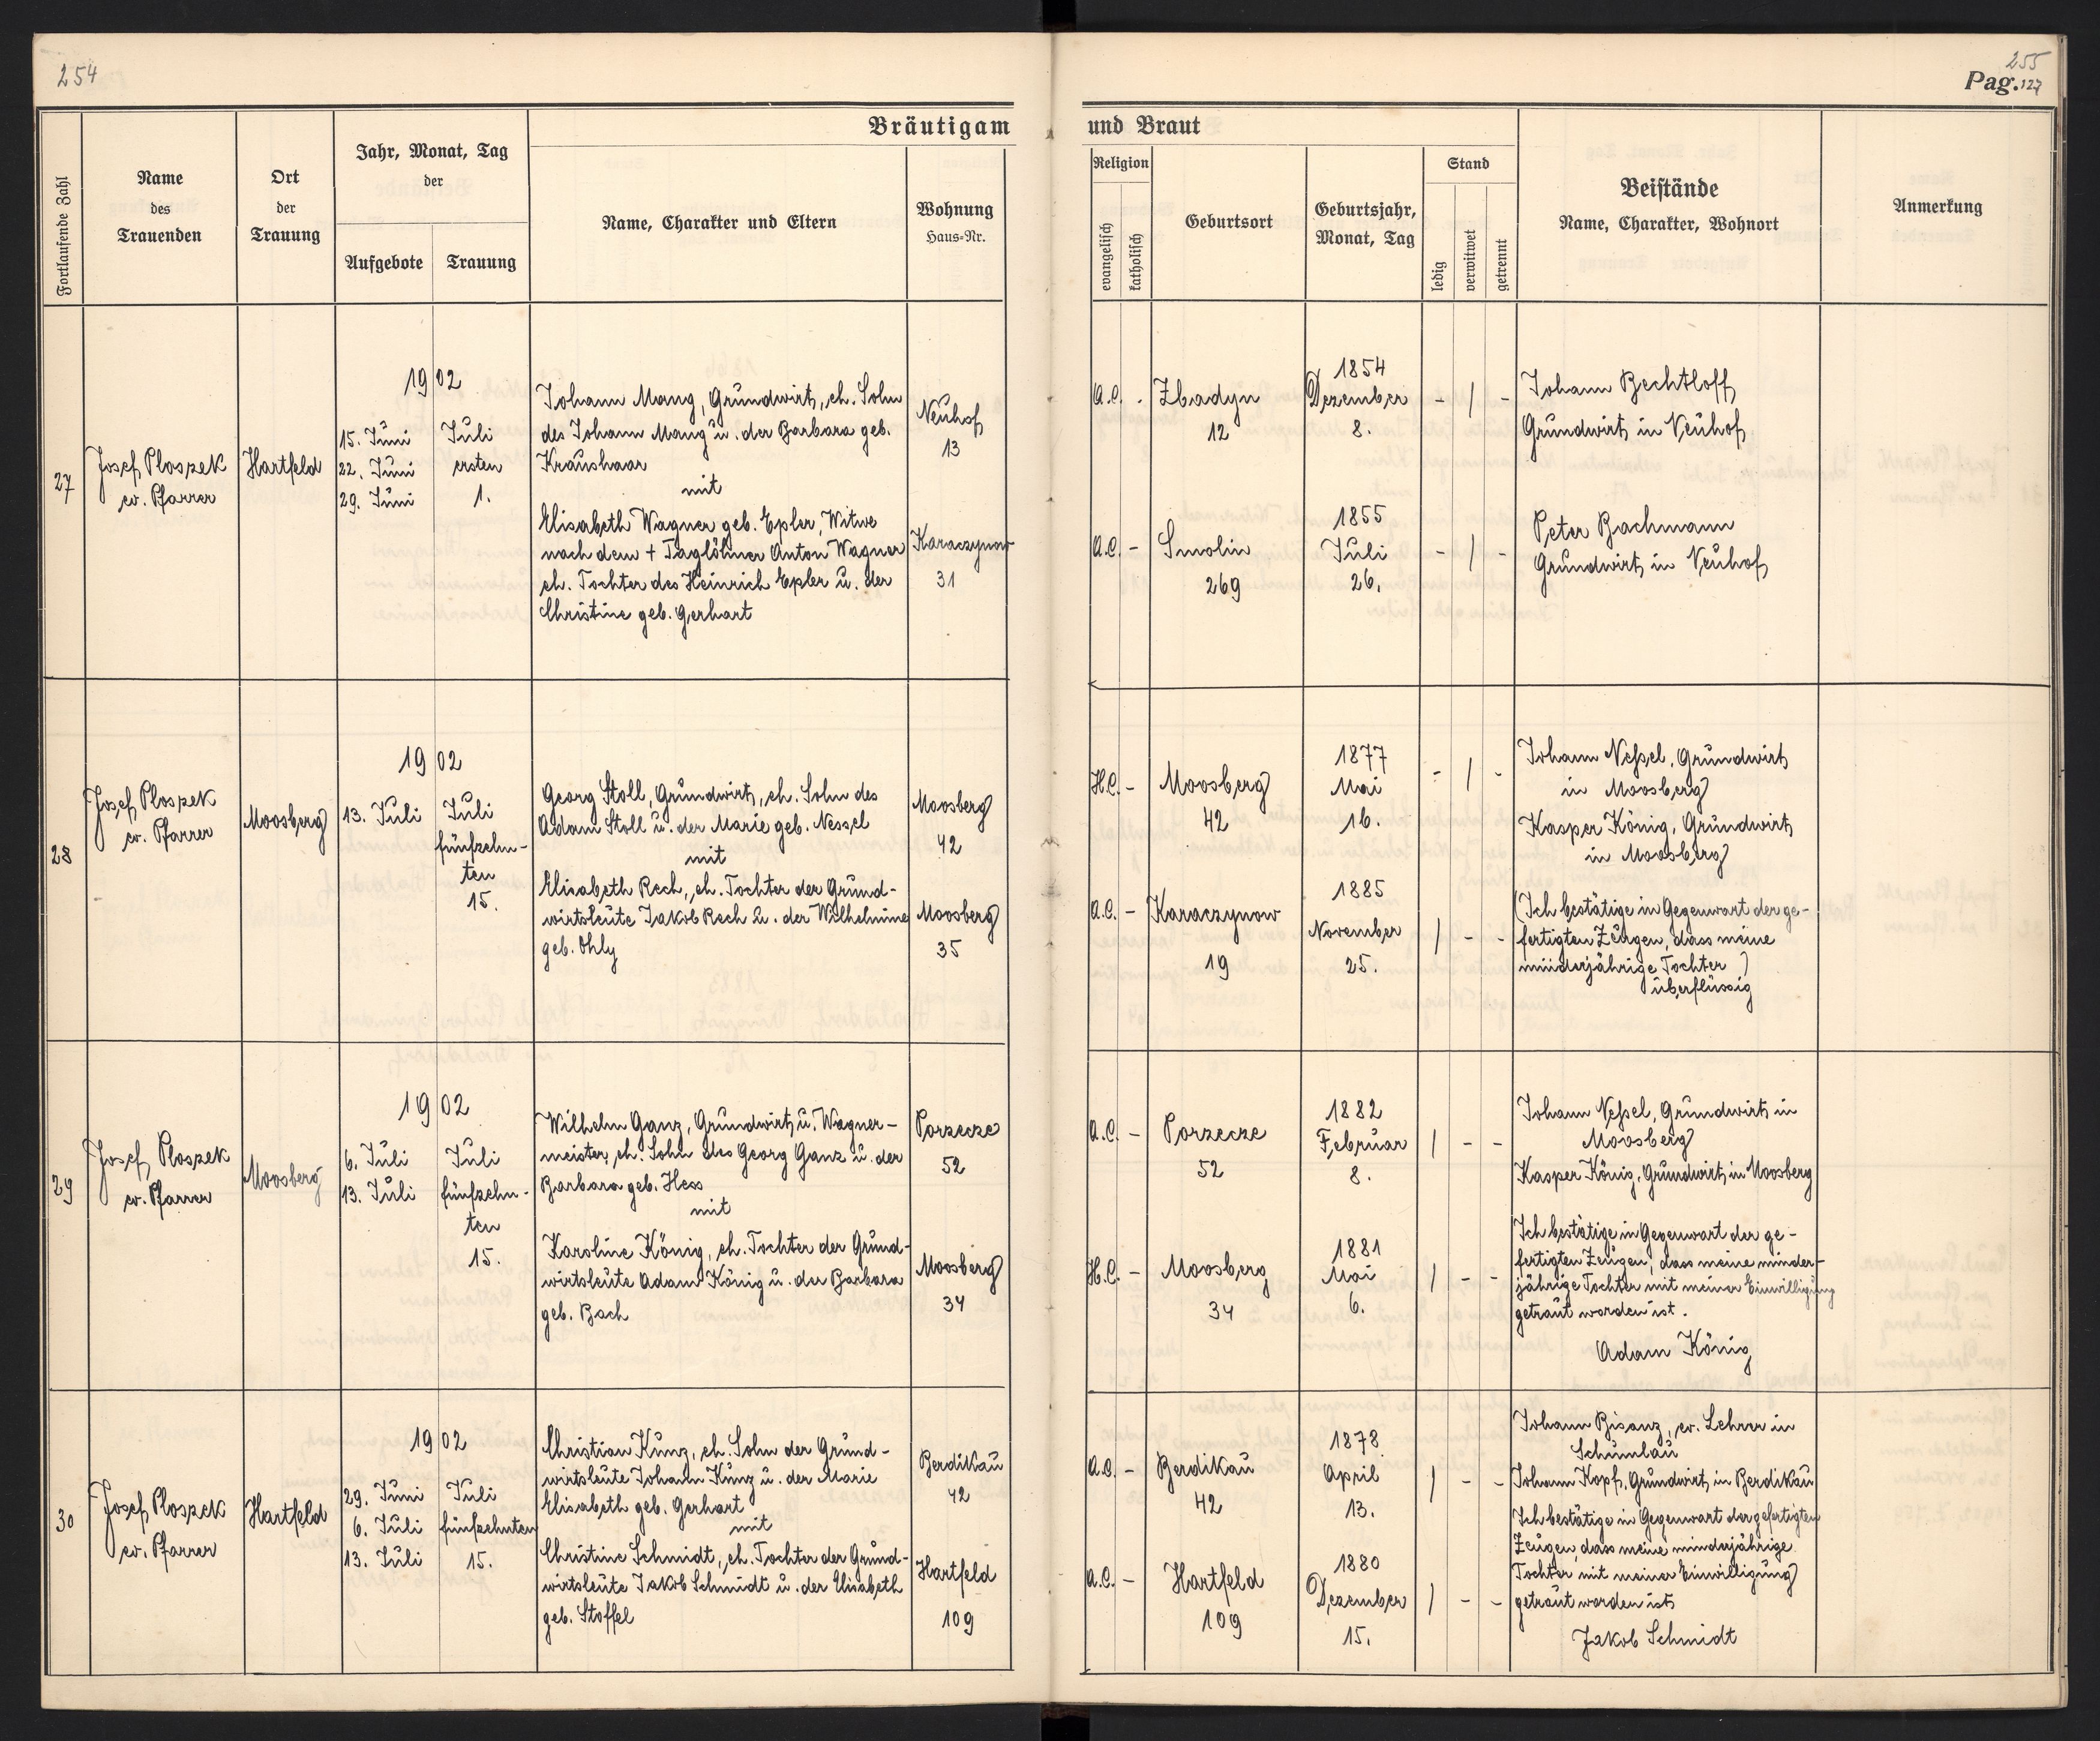 254
255
Pag. 127
Bräutigam und Braut
Fortlaufende Zahl
Name
des
Trauenden
Ort
der
Trauung
Jahr, Monat, Tag
der
Aufgebote
Trauung
Name, Charakter und Eltern
Wohnung
Haus-Nr.
Religion
evangelisch
katholisch
Geburtsort
Geburtsjahr,
Monat, Tag
Stand
ledig
verwitwet
getrennt
Beistände
Name, Charakter, Wohnort
Anmerkung
27
Josef Ploszek
ev. Pfarrer
Hartfeld
1902
15. Juni
22. Juni
29. Juni
Juli
ersten
1.
Johann Mang, Grundwirt, eh. Sohn
des Johann Mang u. der Barbara geb.
Kraushaar
mit
Elisabeth Wagner geb. Epler, Witwe
nach dem + Taglöhner Anton Wagner
eh. Tochter des Heinrich Epler u. der
Christine geb. Gerhart
Neuhof
13
Karaczynow
31
A.C. -
Zbadyn
12
1854
Dezember
8.
- / -
Johann Bechtloff
Grundwirt in Neuhof
A.C. -
Smolin
269
1855
Juli
26.
- / -
Peter Bachmann
Grundwirt in Neuhof
28
Josef Ploszek
ev. Pfarrer
Moosberg
1902
13. Juli
Juli
fünfzehn-
ten
15.
Georg Stoll, Grundwirt, eh. Sohn des
Adam Stoll u. der Marie geb. Nessel
mit
Elisabeth Rech, eh. Tochter der Grund-
wirtsleute Jakob Rech u. der Wilhelmine
geb. Ohly
Moosberg
42
Moosberg
35
H.C. -
Moosberg
42
1877
Mai
16.
- / -
Johann Neßel, Grundwirt
in Moosberg
Kasper König, Grundwirt
in Moosberg
A.C. -
Karaczynow
19
1885
November
25.
/ - -
(Ich bestätige in Gegenwart der ge-
fertigten Zeugen, dass meine
minderjährige Tochter )
überflüssig
29
Josef Ploszek
ev. Pfarrer
Moosberg
1902
6. Juli
13. Juli
Juli
fünfzehn-
ten
15.
Wilhelm Ganz, Grundwirt u. Wagner-
meister, eh. Sohn des Georg Ganz u. der
Barbara geb. Hess
mit
Karoline König, eh. Tochter der Grund-
wirtsleute Adam König u. der Barbara
geb. Bach
Porzecze
52
Moosberg
34
A.C. -
Porzecze
52
1882
Februar
8.
/ - -
Johann Neßel, Grundwirt in
Moosberg
Kasper König, Grundwirt in Moosberg
H.C. -
Moosberg
34
1881
Mai
6.
/ - -
Ich bestätige in Gegenwart der ge-
fertigten Zeugen, dass meine minder-
jährige Tochter mit meiner Einwilligung
getraut worden ist.
Adam König
30
Josef Ploszek
ev. Pfarrer
Hartfeld
1902
29. Juni
6. Juli
13. Juli
Juli
fünfzehnten
15.
Christian Kunz, eh. Sohn der Grund-
wirtsleute Johann Kunz u. der Marie
Elisabeth geb. Gerhart
mit
Christine Schmidt, eh. Tochter der Grund-
wirtsleute Jakob Schmidt u. der Elisabeth
geb. Stoffel
Berdikau
42
Hartfeld
109
A.C. -
Berdikau
42
1878
April
13.
/ - -
Johann Bisanz, ev. Lehrer in
Schumlau
Johann Kopf, Grundwirt in Berdikau
A.C. -
Hartfeld
109
1880
Dezember
15.
/ - -
Ich bestätige in Gegenwart der gefertigten
Zeugen, dass meine minderjährige
Tochter mit meiner Einwilligung
getraut worden ist
Jakob Schmidt